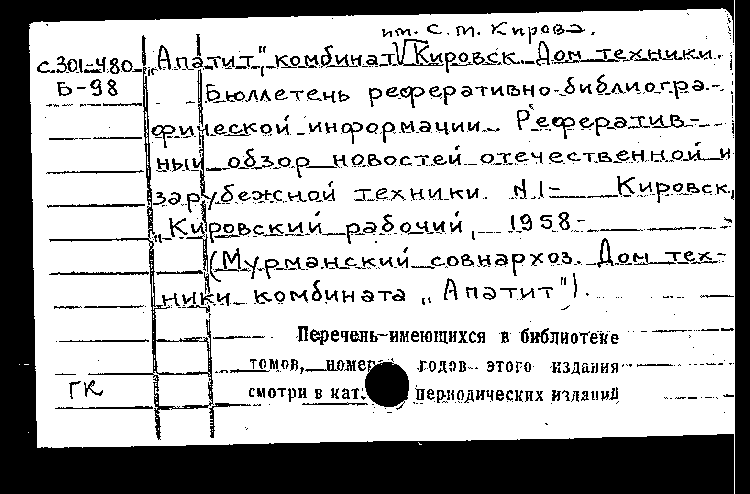 им. С. М. Кирова.
с.301-480 „Апатит", комбинат Кировск. Дом техники.
Б-98 Бюллетень реферативно-библиогра-
фической информации. Реферативный
ный обзор новостей отечественной и
зарубежной техники. N 1- Кировск,
„Кировский рабочий, 1958-
(Мурманский совнархоз. Дом тех-
ники комбината „Апатит").
Перечень имеющихся в библиотеке
томов, номеров, годов этого издания
ГК смотри в кат. периодических изданий